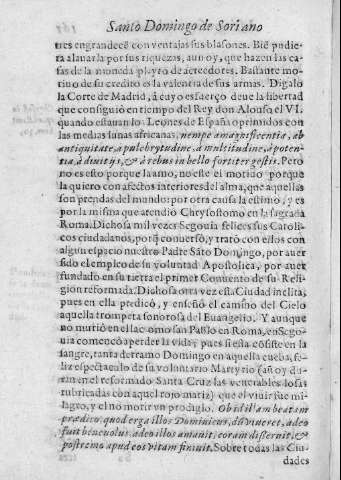 Santo Domingo de Soriano
tres engrandecē con ventajas sus blasones. Biē pudie-
ra alauarla por sus riquezas, aun oy, que hazen las ca-
sas de la moneda de acreedores. Bastante mo-
tiuo de su credito es la valentia de sus armas. Digalo
la Corte de Madrid, â cuyo esfuerço deue la libertad
que consiguiò en tiempo del Rey don Alonso el VI.
quando estauan los Leones de España oprimidos con
las medias lunas africanas, nempe a magnificentia, ab
antiquitate, à pulchrytudine, à multitudine, à poten-
tia, à diuitijs, & à rebus in bello fortiter gestis. Pero
no es esto porque la amo, no este el motiuo porque
la quiero con afectos interiores del alma, que aquellas
son prendas del mundo: por otra causa la estimo, y es
por la misma que atendiò Chrysostomo en la sagrada
Roma. Dichosa mil vezes Segouia felices sus Catoli-
cos ciudadanos, porq̃ conuersò, y tratò con ellos con
algun espacio nuestro Padre Sãto Domingo, por auer
sido el empleo de su voluntad Apostolica, por auer
fundado en su tierra el primer Conuento de su Reli-
gion reformada. Dichosa otra vez esta Ciudad inclita,
pues en ella predicò, y enseñò el camino del Cielo
aquella trompeta sonorosa del Euangelio. Y aunque
no muriò en ella como san Pablo en Roma, en Sego-
uia començò a perder la vida, pues si esta cõsiste en la
sangre, tanta derramo Domingo en aquella cueba, fe-
liz espectaculo de su voluntario Martyrio (aũ oy du-
ran en el reformado Santa Cruz las venerables losas
rubricadas con aquel rojo matiz) que el viuir fue mi-
lagro, y el no morir vn prodigio. Ob id illam beatam
prædico, quod erga illos Dominicus, dũ viueret, adeo
fuit beneuolus, adeo illos amauit, coram disseruit, &
postremo apud eos vitam finiuit. Sobre todas las Ciu-
dades